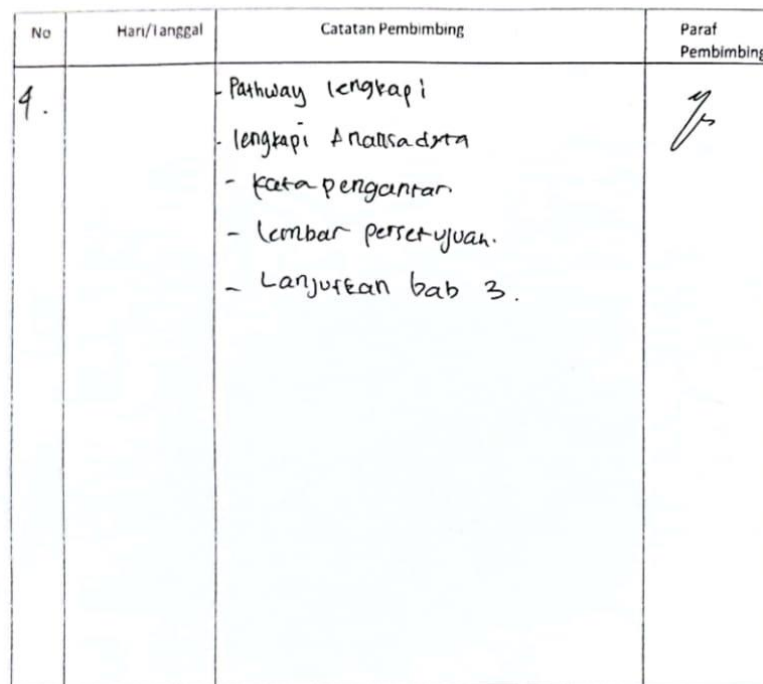 No Hari/Tanggal Catatan Pembimbing Paraf
Pembimbing
4. - Pathway lengkapi
- lengkapi Analisadata
- Kata pengantar.
- lembar persetujuan.
- Lanjutkan bab 3.